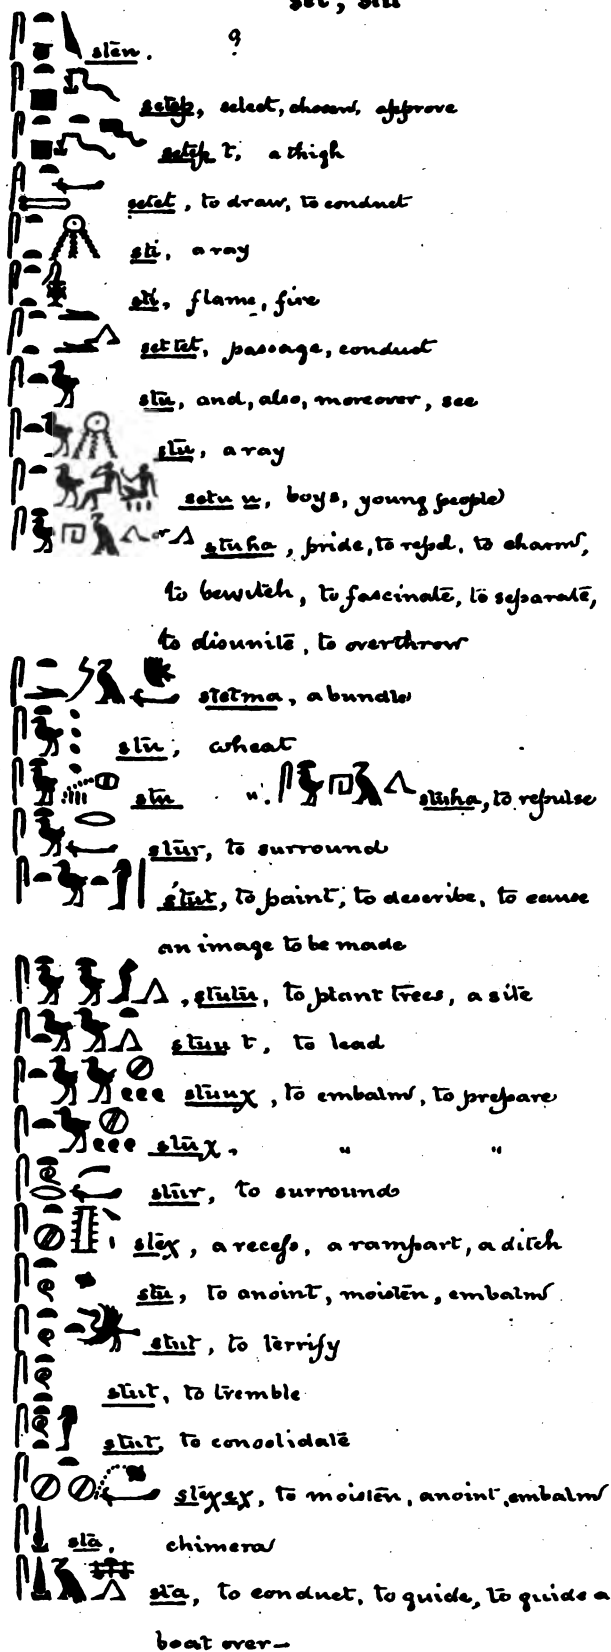 set, stu
sten. ?
setep, select, chosen, approve
setep t, a thigh
setet, to draw, to conduct
sti, a ray
sti, flame, fire
set tet, passage, conduct
stu, and, also, moreover, see
stu, a ray
setu u, boys, young people
stuha, pride, to repel, to charm,
to bewitch, to fascinate, to separate,
to disunite, to overthrow
stetma, a bundle
stu, wheat
stu ". stuha, to repulse
stur, to surround
stut, to paint, to describe, to cause
an image to be made
, stutu, to plant trees, a site
stuu t, to lead
stuuχ, to embalm, to prepare
stuχ, " "
stur, to surround
steχ, a recess, a rampart, a ditch
stu, to anoint, moisten, embalm
stut, to terrify
stut, to tremble
stut, to consolidate
steχeχ, to moisten, anoint, embalm
sta, chimera
sta, to conduct, to guide, to guide a
boat over—